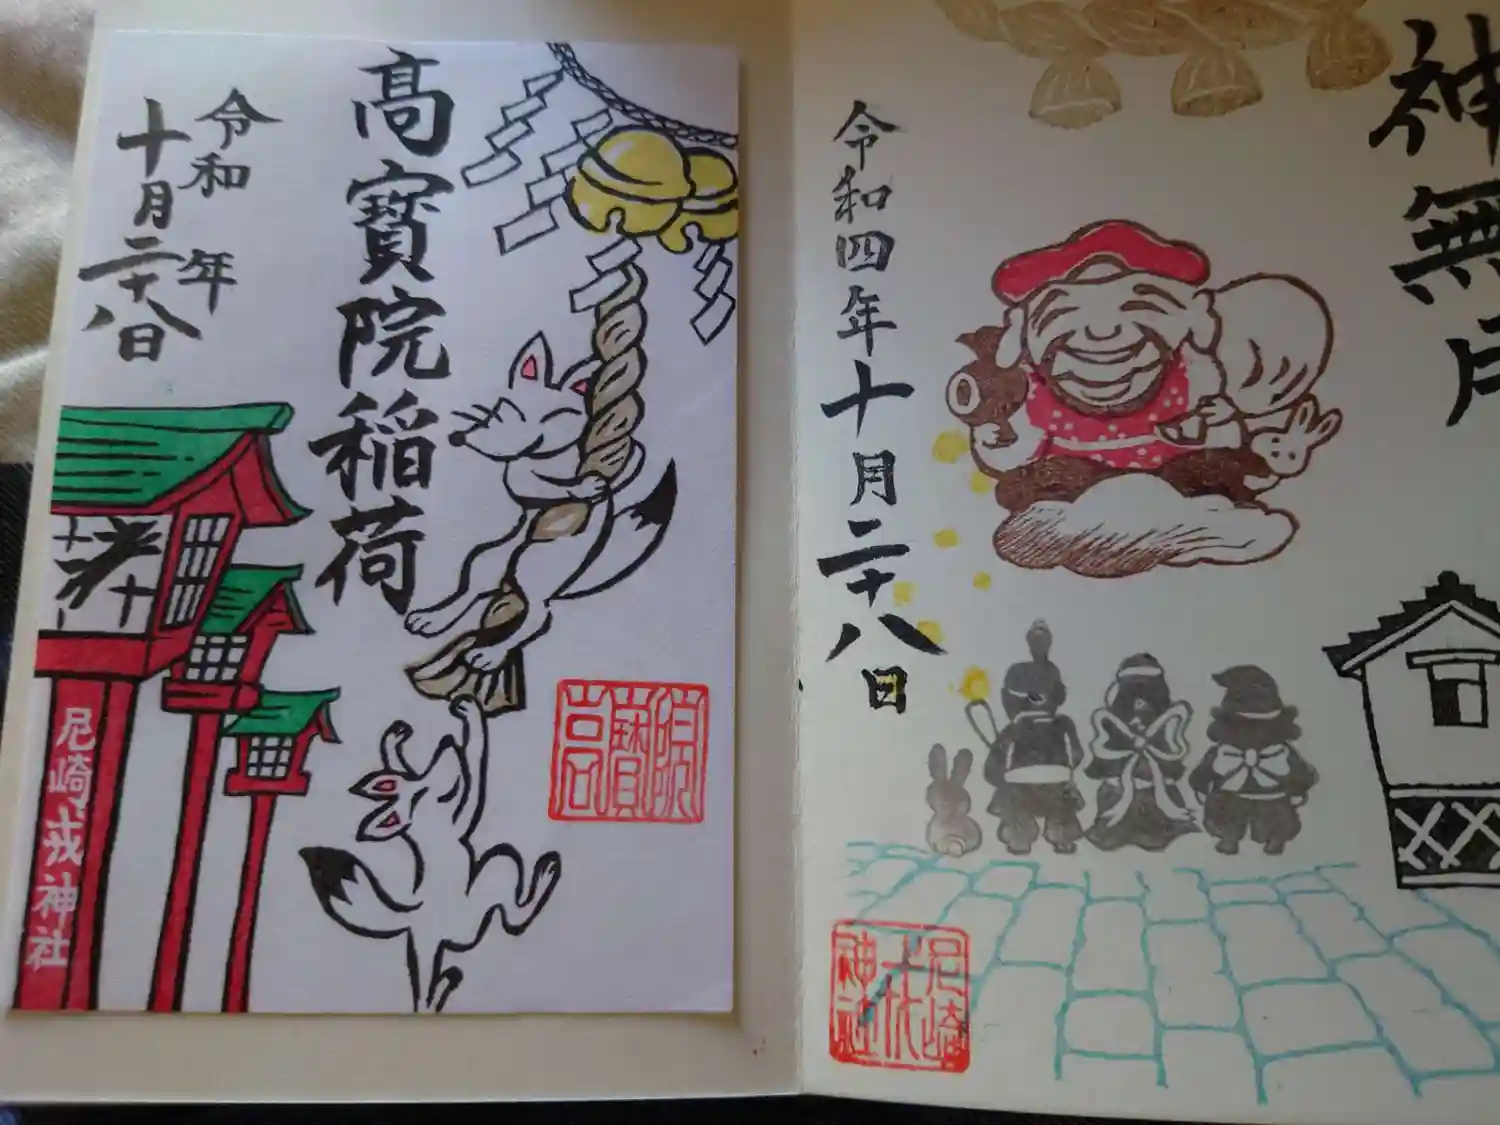 高寳院稲荷
令和 年
十月二十八日
尼崎戎神社
高寳院
神無月
令和四年
十月二十八日
尼崎
戎
神社